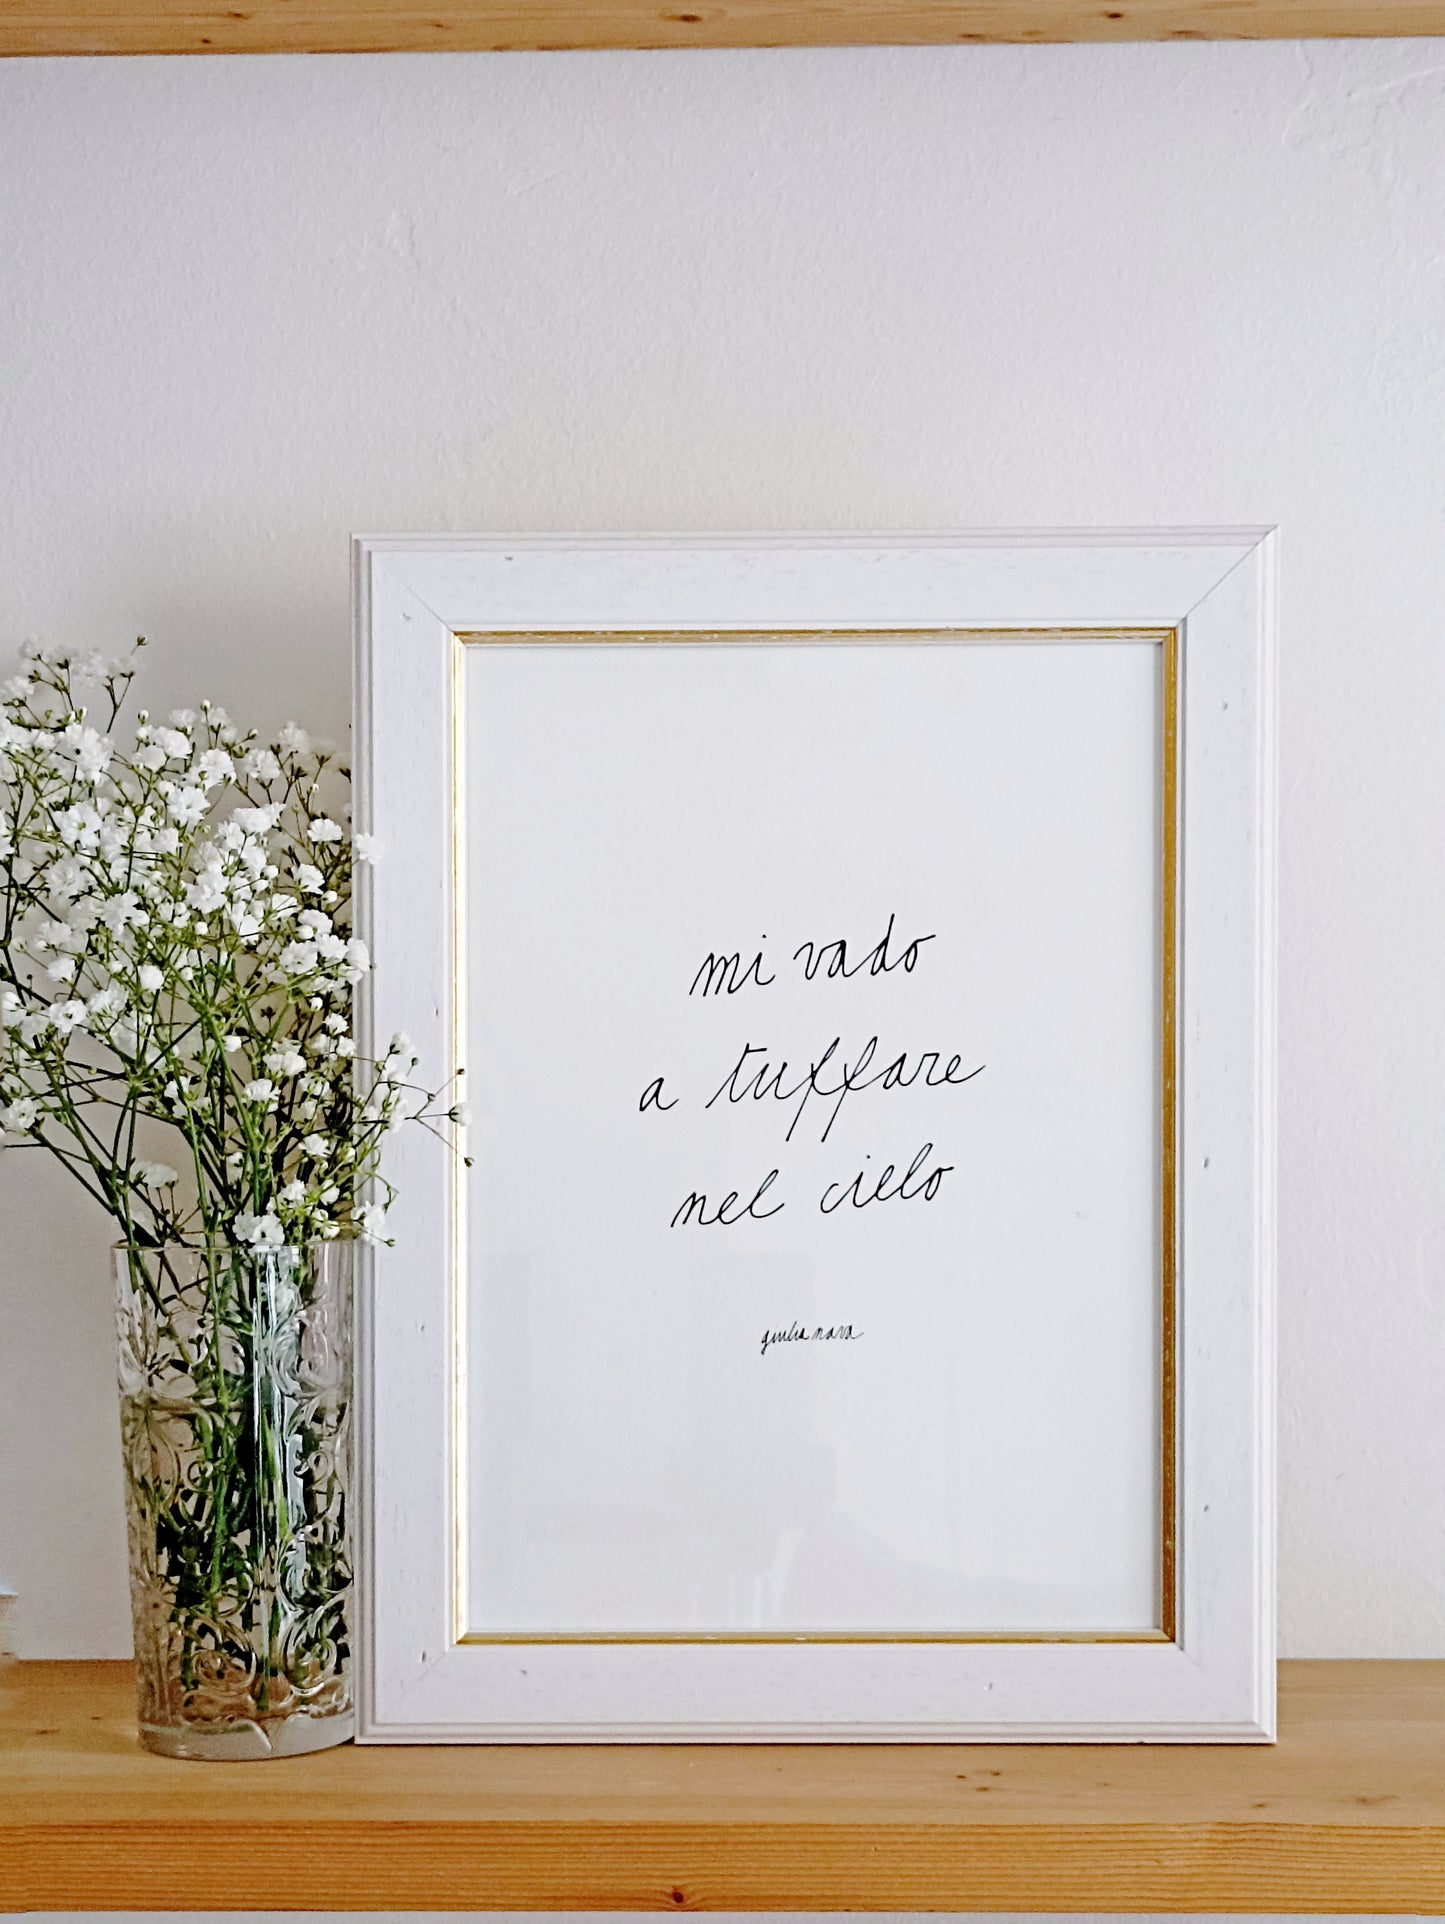 mi vado
a tuffare
nel cielo
giulia nava